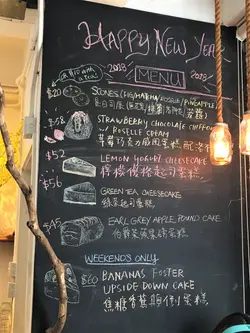 HAPPY NEW YEA
2023 2023
MENU
$20
SCONES (FIG/MATCHA/ROSELLE/PINEAPPLE)
$58
STRAWBERRY CHOCOLATE CHIFFON
W/ ROSELLE CREAM
草莓巧克力戚風蛋糕
$52
LEMON YOGURT CHEESECAKE
檸檬優格起司蛋糕
$56
GREEN TEA CHEESECAKE
綠茶起司蛋糕
45
EARL GREY APPLE POUND CAKE
伯爵茶蘋果磅蛋糕
WEEKENDS ONLY
$60
BANANAS FOSTER
UPSIDE DOWN CAKE
焦糖香蕉顛倒蛋糕